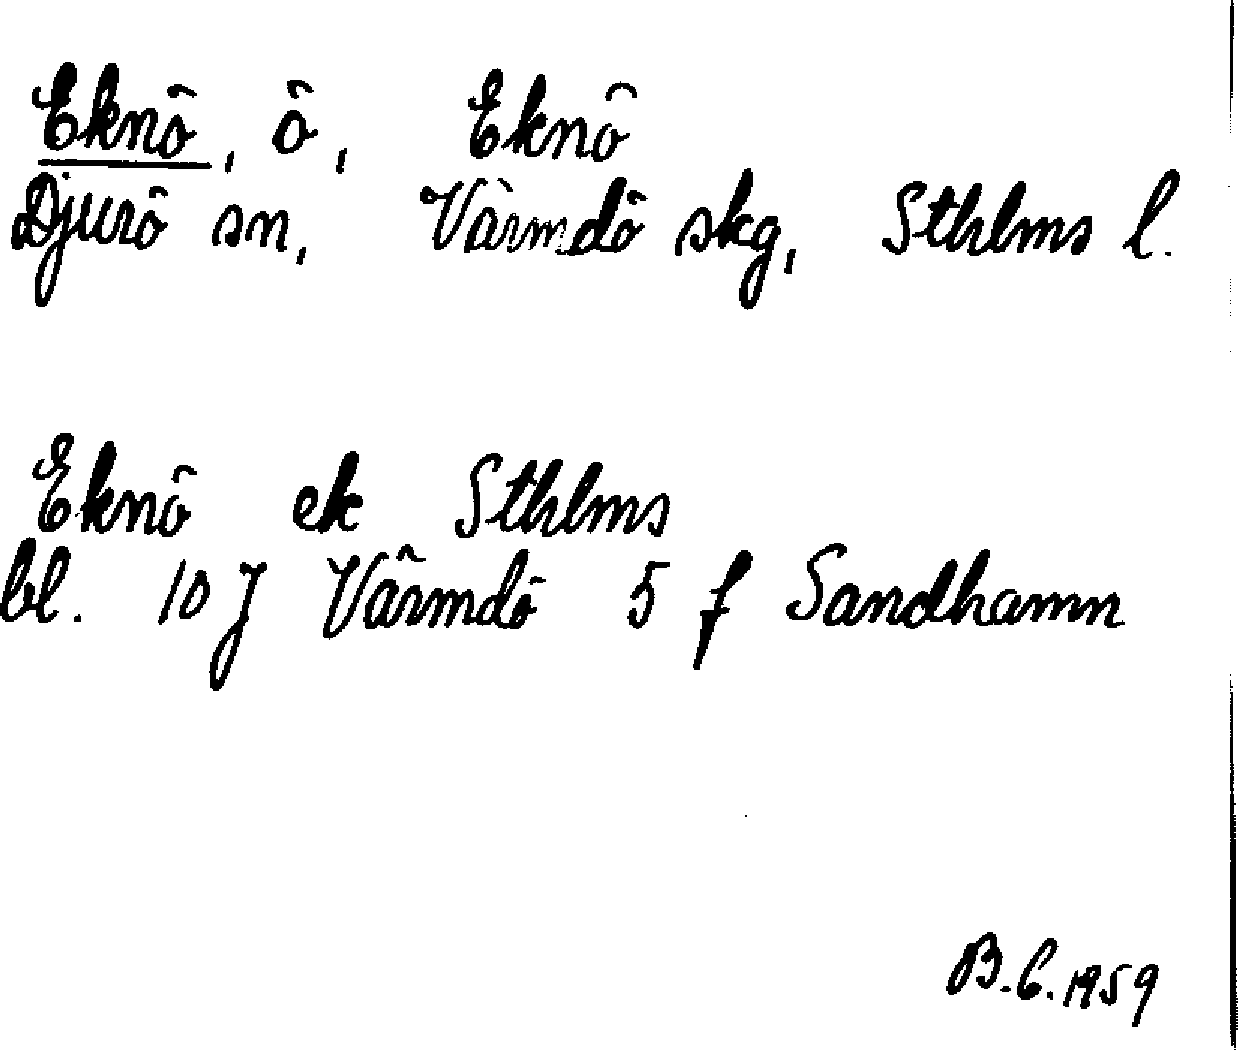 Eknö, ö, Eknö
Djurö sn, Värmdö skg, Sthlms l.
Eknö ek Sthlms
bl. 10 J Värmdö 5 f Sandhamn
B.C. 1959